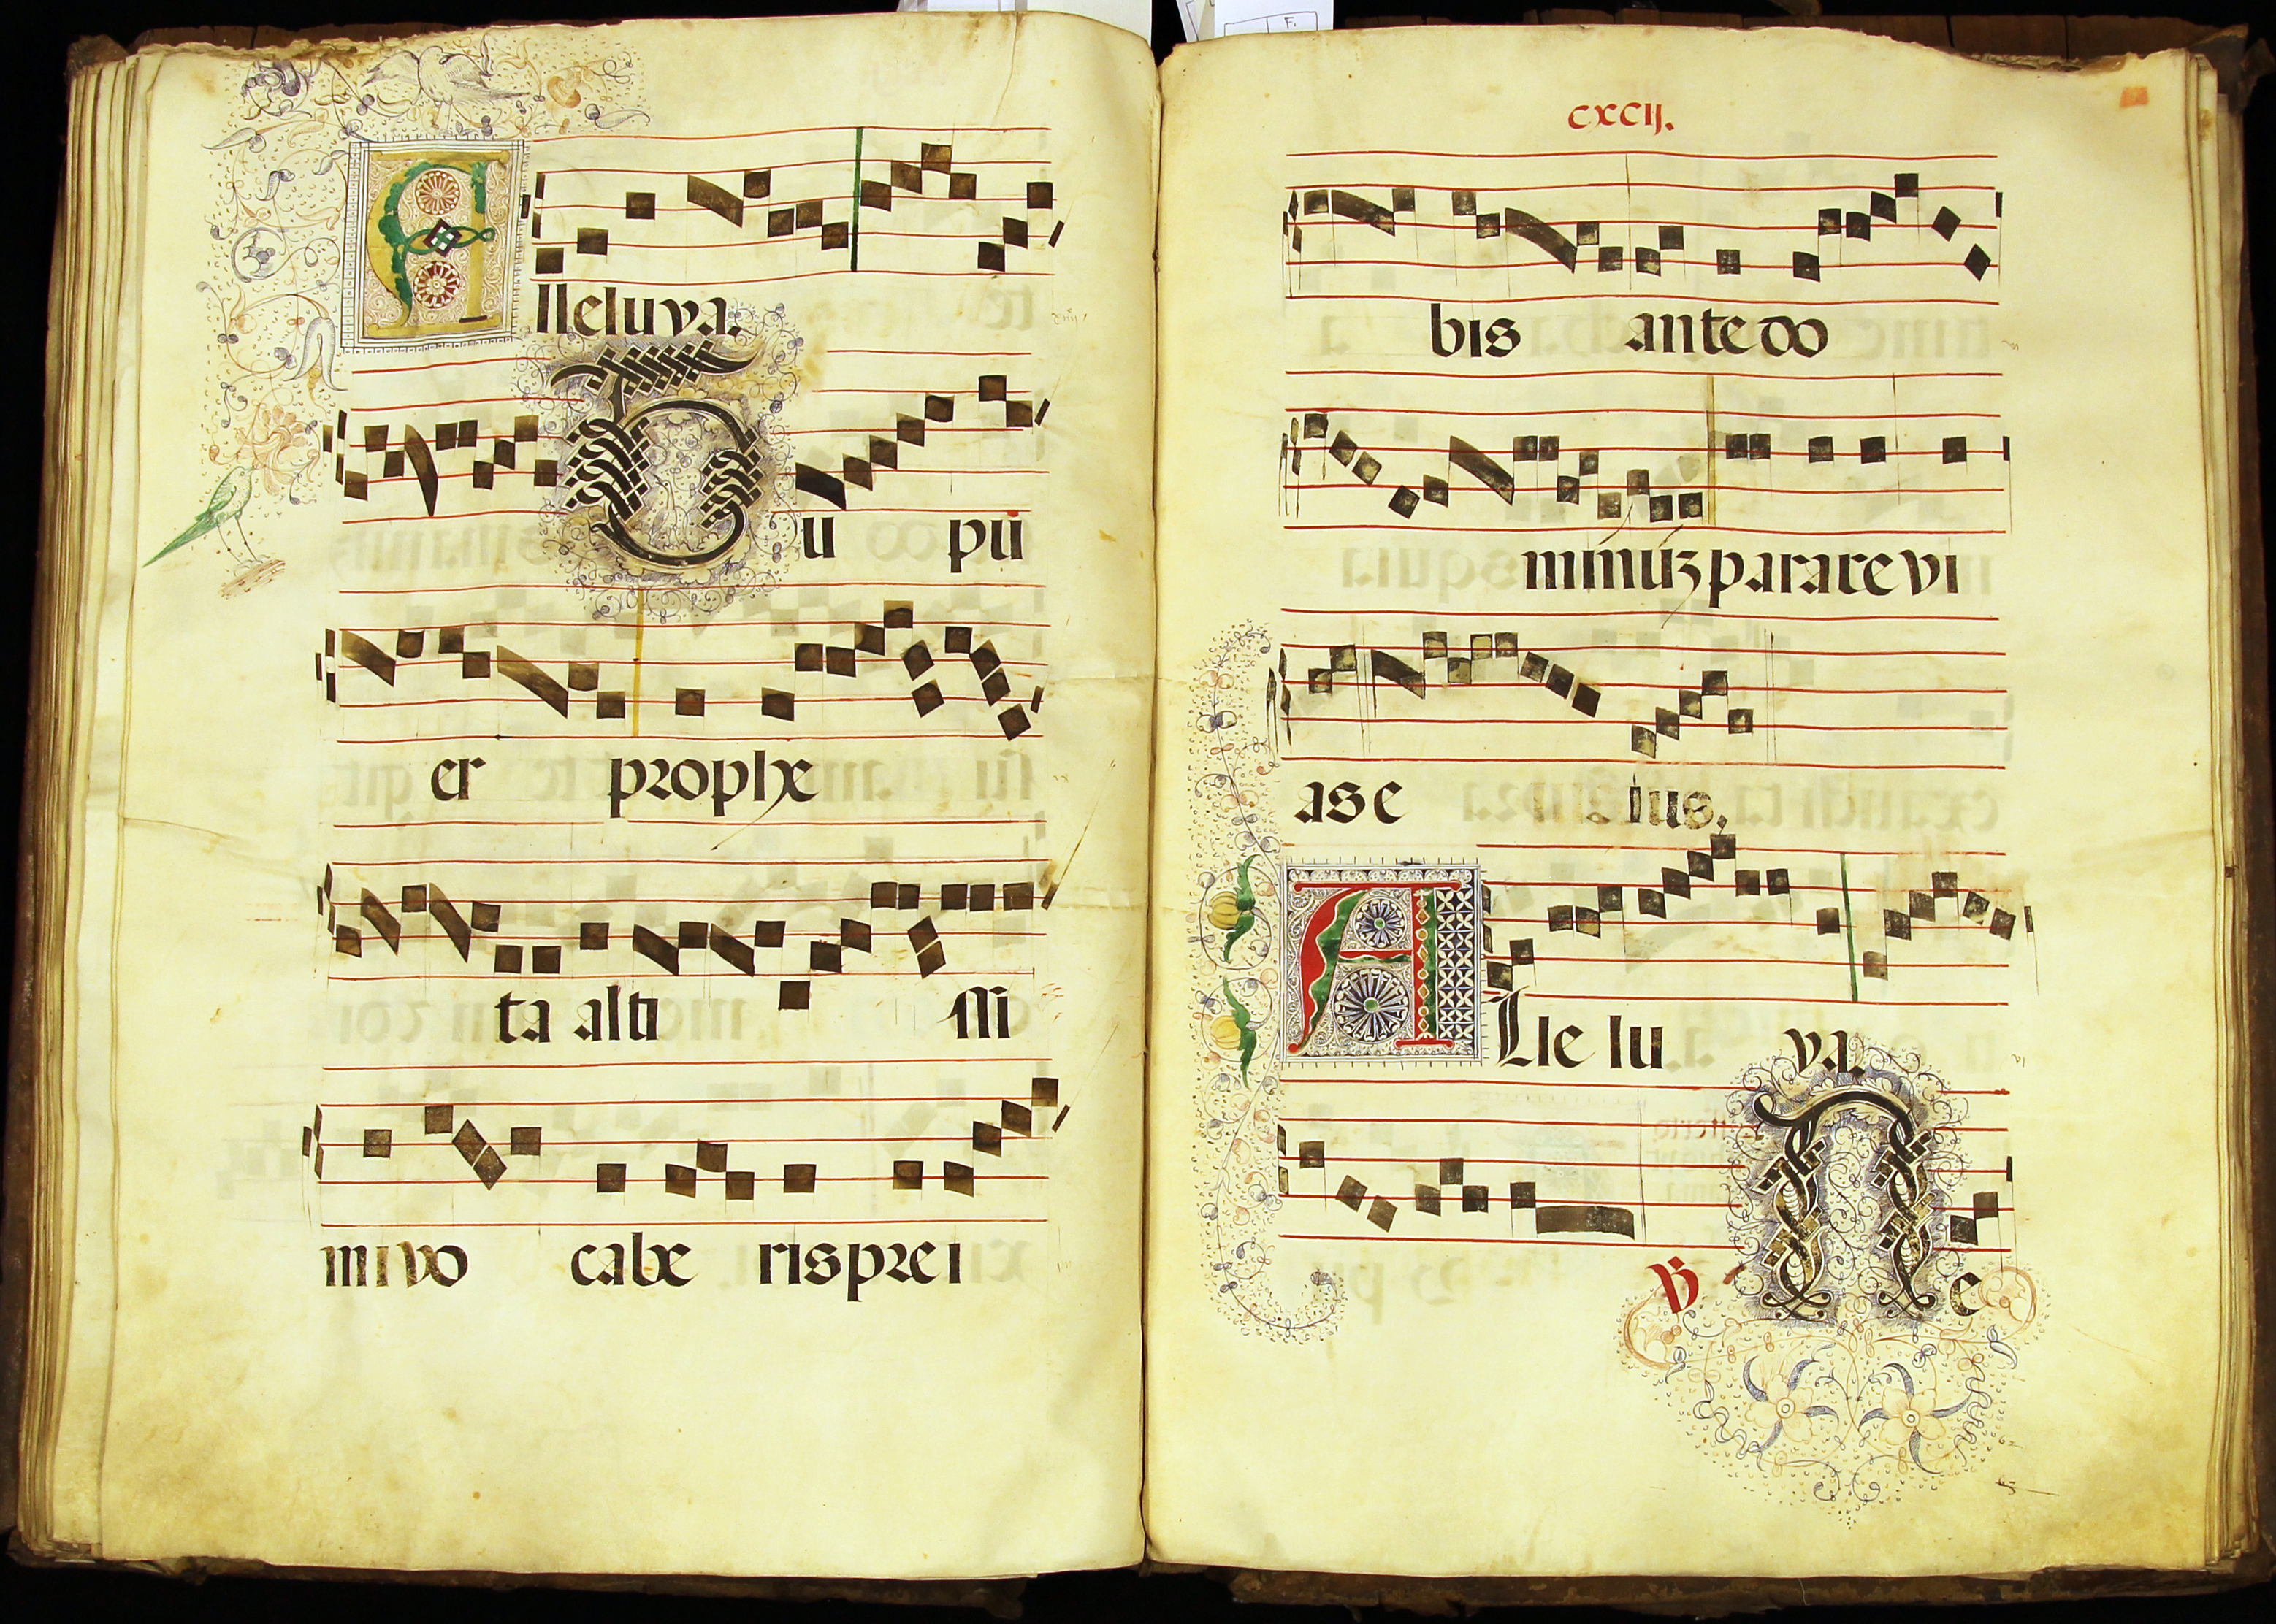 Alleluya.
Tu pu
er prophe
ta alti ssi
mi vo cabe ris prei
CXCIJ.
bis ante do
minuz parare vi
as e ius.
ALle lu ya.
℣ Ne